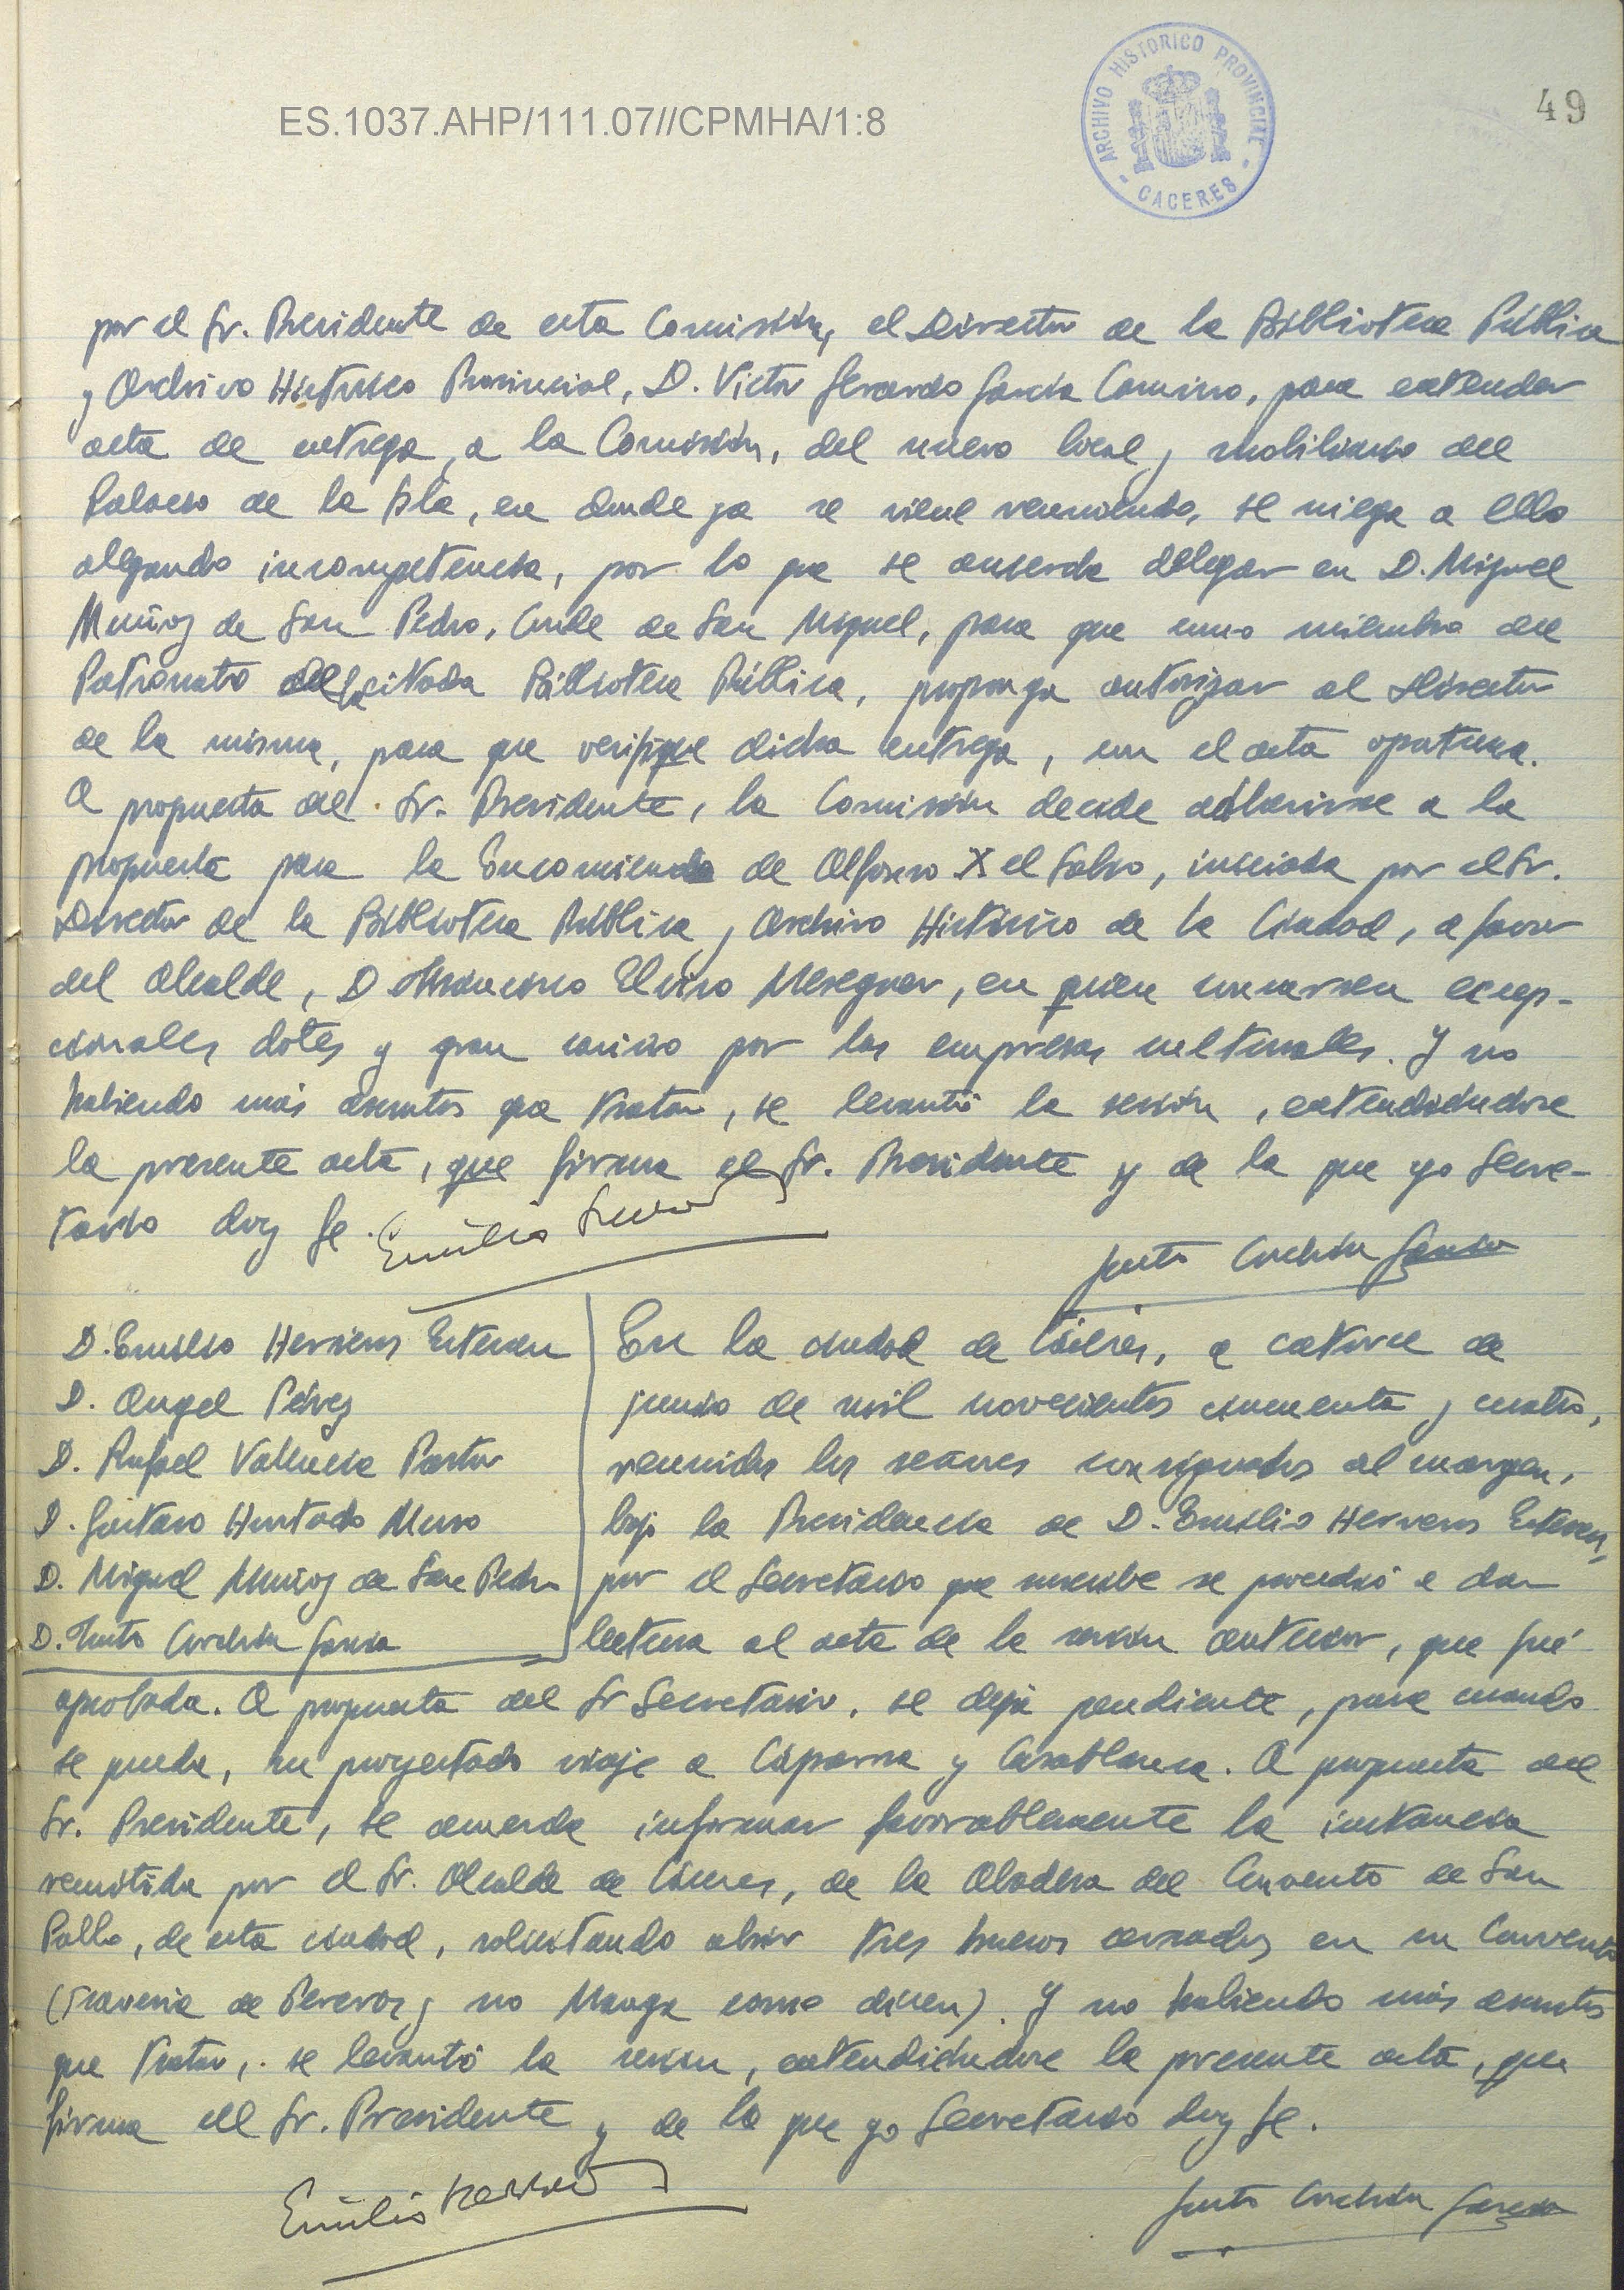 ES.1037.AHP/111.07//CPMHA/1:8
ARCHIVO HISTORICO PROVINCIAL
CACERES
49
por el Sr. Presidente de esta Comisión, el Director de la Biblioteca Pública
y Archivo Histórico Provincial, D. Victor Gerardo García Camino, para extender
acta de entrega, a la Comisión, del nuevo local y mobiliario del
Palacio de la Isla, en donde ya se viene reuniendo, se niega a ello
alegando incompetencia, por lo que se acuerda delegar en D. Miguel
Muñoz de San Pedro, Conde de San Miguel, para que como miembro del
Patronato de la citada Biblioteca Pública, proponga autorizar al Director
de la misma, para que verifique dicha entrega, con el acta oportuna.
A propuesta del Sr. Presidente, la Comisión decide adherirse a la
propuesta para la Encomienda de Alfonso X el Sabio, iniciada por el Sr.
Director de la Biblioteca Pública y Archivo Histórico de la Ciudad, a favor
del Alcalde, D. Francisco Elviro Meseguer, en quien concurren excep-
cionales dotes y gran cariño por las empresas culturales. Y no
habiendo más asuntos que tratar, se levantó la sesión, extendiéndose
la presente acta, que firma el Sr. Presidente y de la que yo Secre-
tario doy fe.
Emilio Herreros
Justo Corchón García
D. Emilio Herreros Estevan
D. Angel Pérez
D. Rafael Valencia Pastor
D. Gustavo Hurtado Muro
D. Miguel Muñoz de San Pedro
D. Justo Corchón García
En la ciudad de Cáceres, a catorce de
junio de mil novecientos cincuenta y cuatro,
reunidos los señores consignados al margen,
bajo la Presidencia de D. Emilio Herreros Estevan,
por el Secretario que suscribe se procedió a dar
lectura al acta de la sesión anterior, que fué
aprobada. A propuesta del Sr Secretario, se deja pendiente, para cuando
se pueda, su proyectado viaje a Cáparra y Casablanca. A propuesta del
Sr. Presidente, se acuerda informar favorablemente la instancia
remitida por el Sr. Alcalde de Cáceres, de la Abadesa del Convento de San
Pablo, de esta ciudad, solicitando abrir tres huecos cerrados en su Convento
(Travesia de Pereros y no Monja como dicen). Y no habiendo más asuntos
que tratar, se levantó la sesión, extendiéndose la presente acta, que
firma el Sr. Presidente y de la que yo Secretario doy fe.
Emilio Herreros
Justo Corchón García